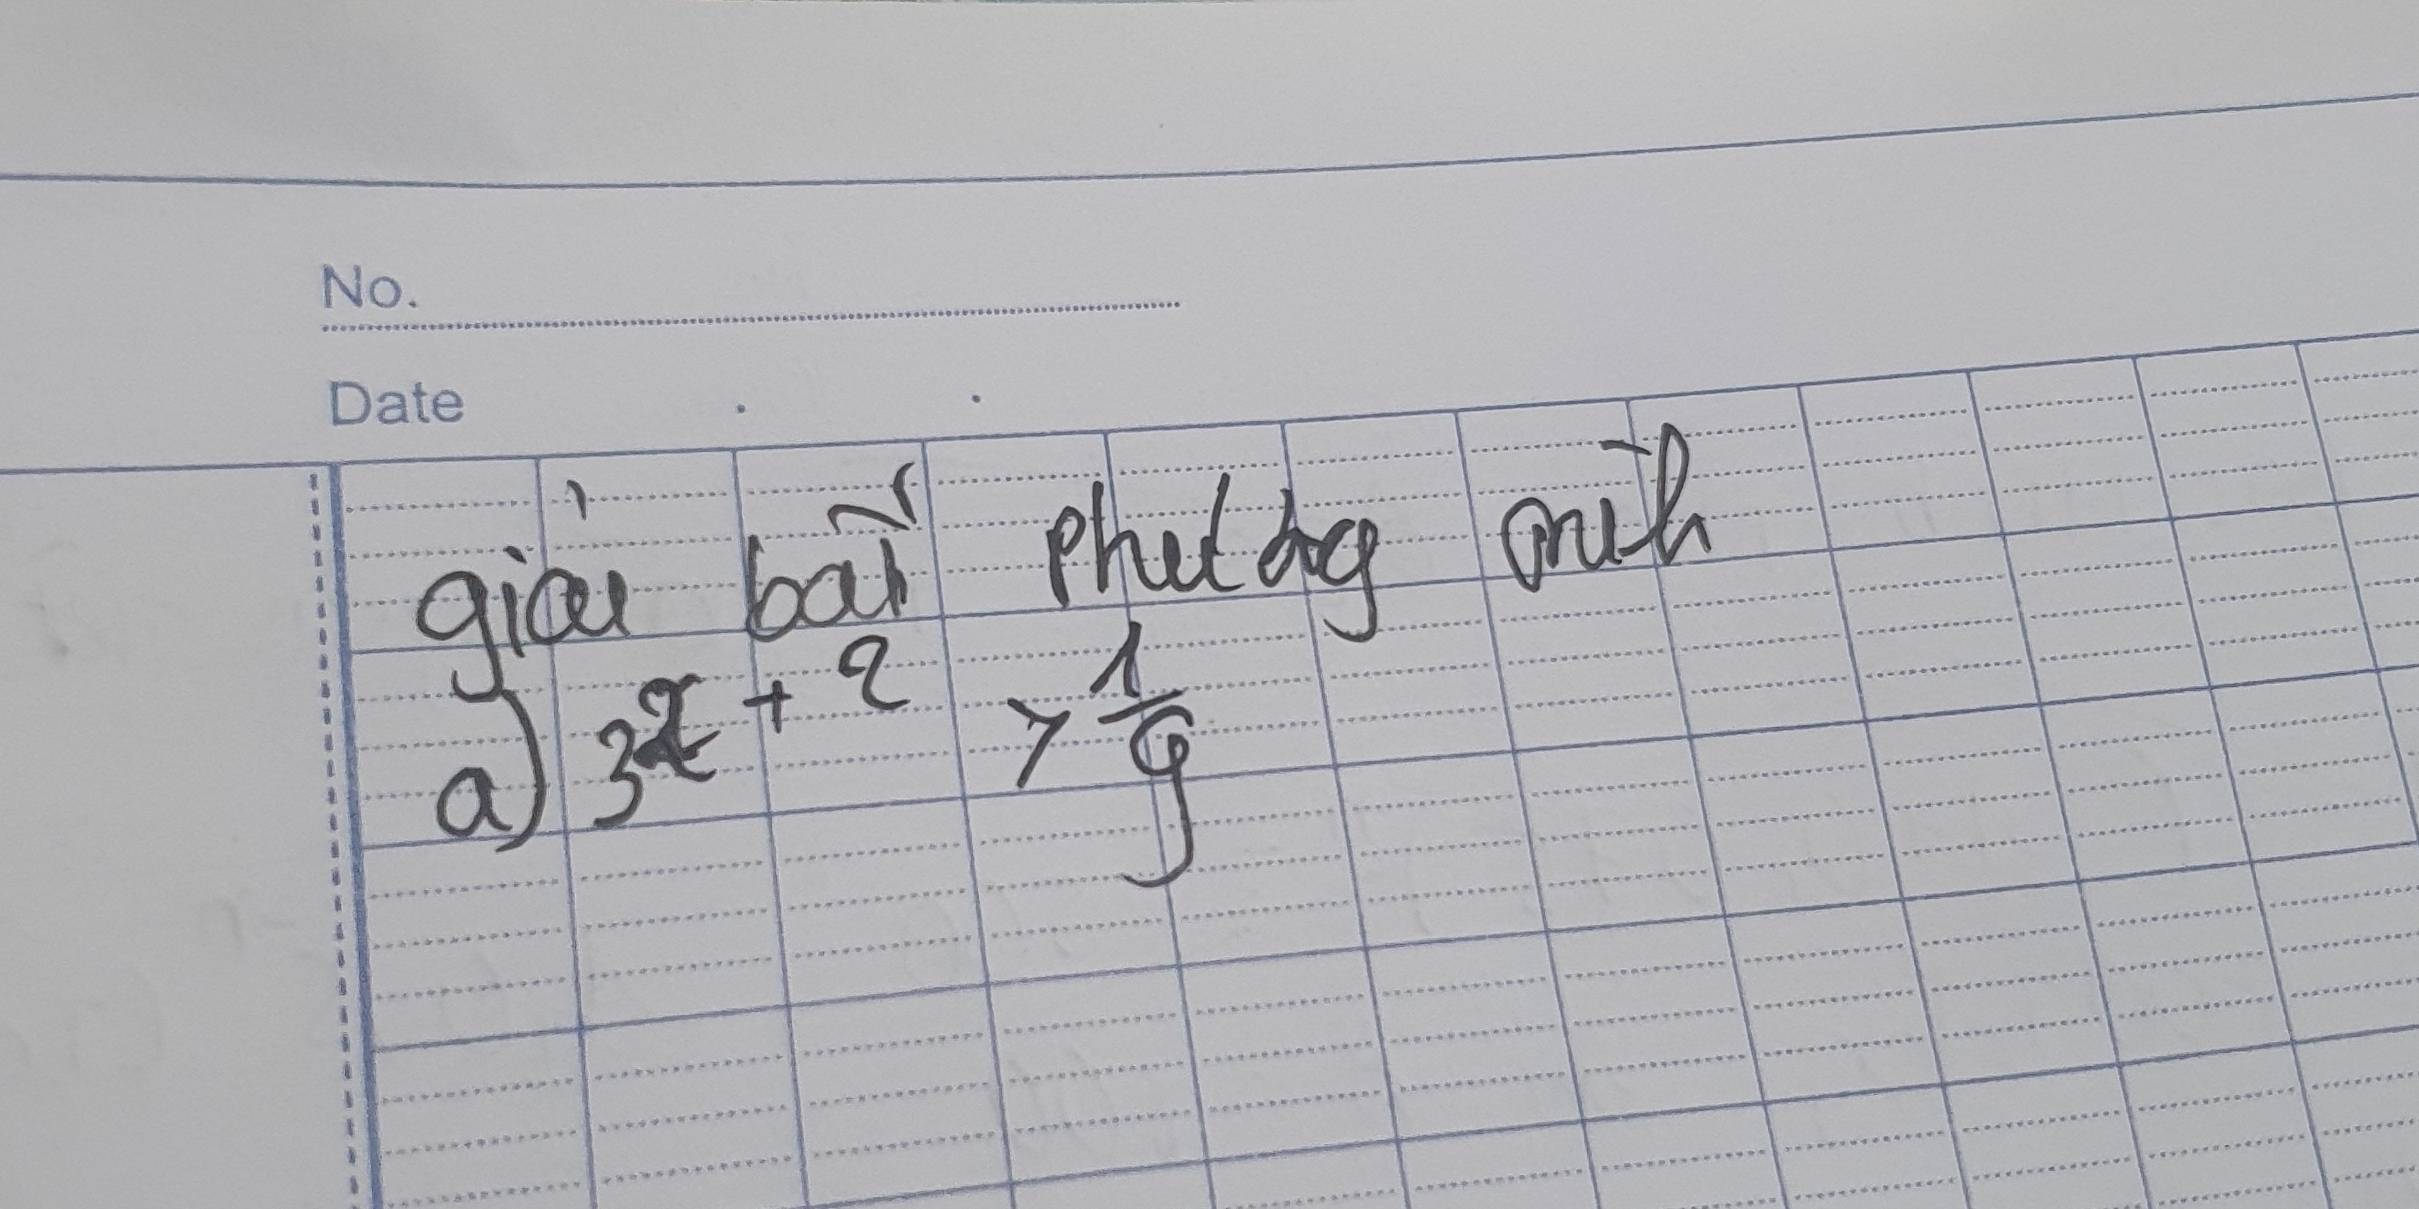 No.
Date
giải bất phương trình
a) 3^{x + 2} > \frac{1}{9}